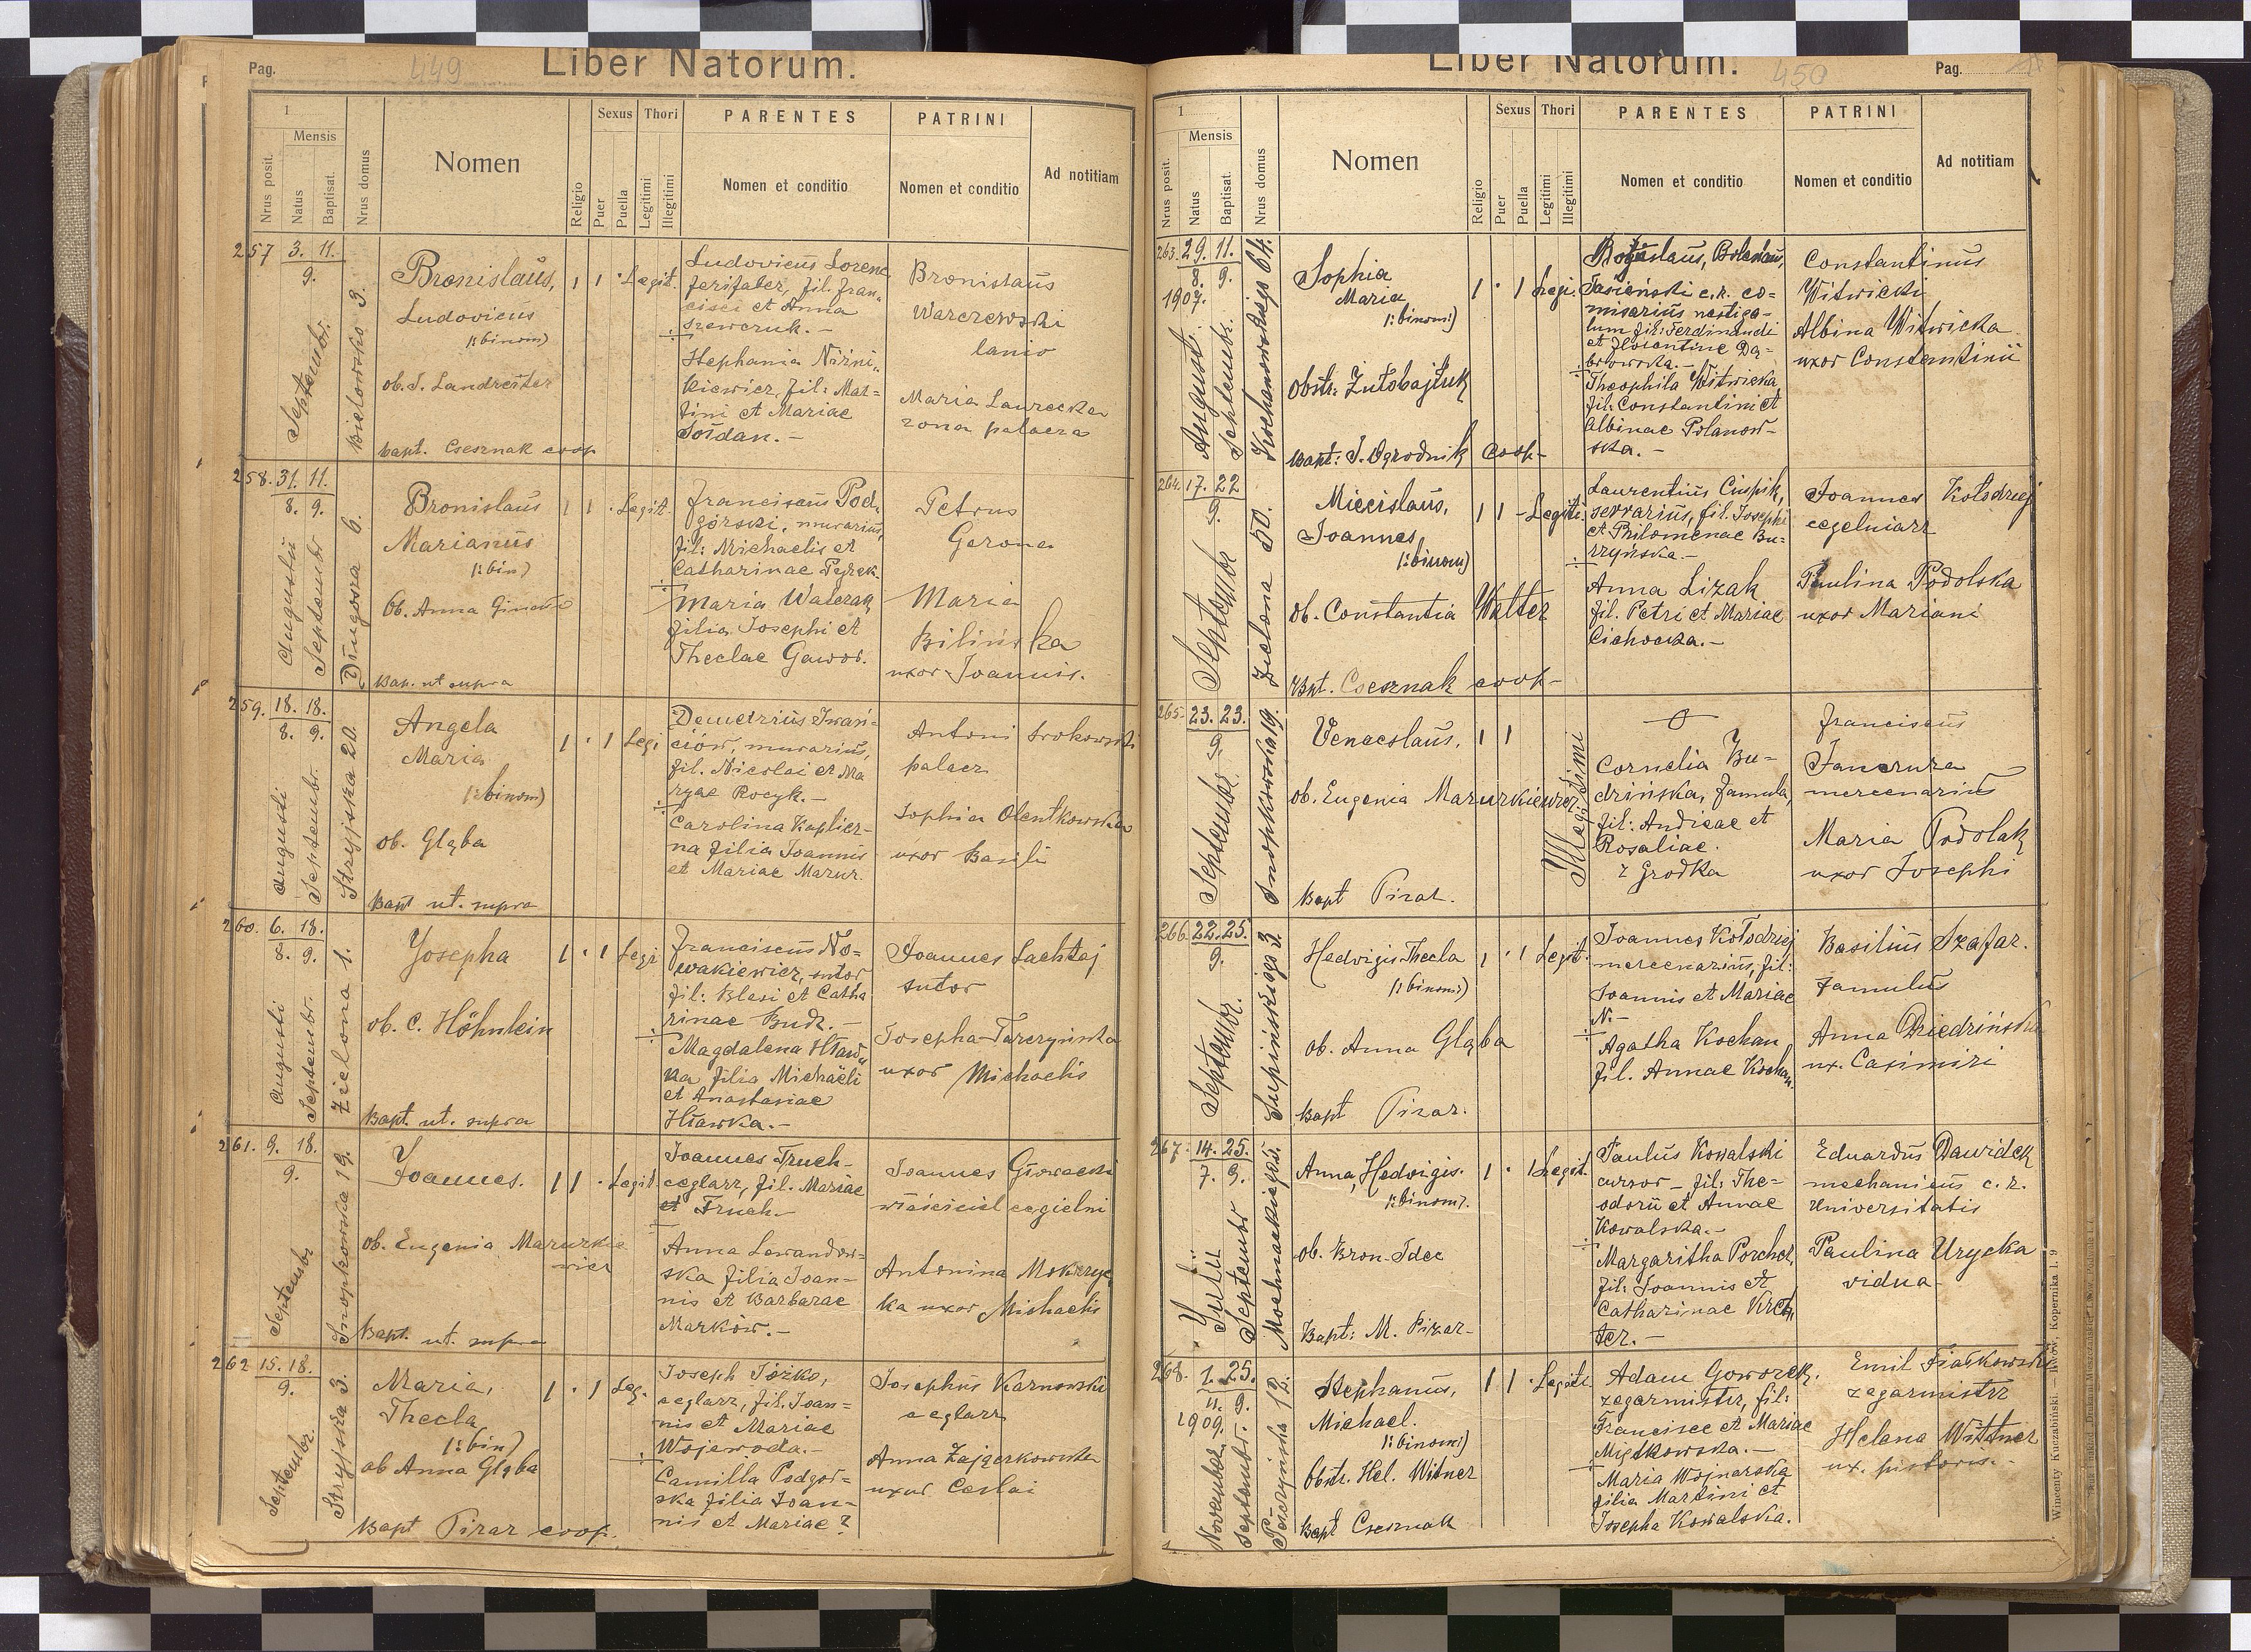 Pag.
449
Liber Natorum.
1
Mensis
Nrus posit.
Natus
Baptisat.
Nrus domus
Nomen
Religio
Sexus
Puer
Puella
Thori
Legitimi
Illegitimi
PARENTES
Nomen et conditio
PATRINI
Nomen et conditio
Ad notitiam
257
3. 11.
9.
Septembr.
Bielowsko 3.
Bronislaus,
Ludovicus
/:binom)
ob. S. Landreiter
bapt. Csesznak coop
1 1 · Legit.
Ludovicus Lorenc
ferifaber, fil. Fran-
cisci et Anna
Szewczuk. —
Stephania Nižni-
kiewicz, fil: Mar-
tini et Mariae
Soidan. —
Bronislaus
Warczewski
lanio
Maria Laurecka
żona palacza
258.
31. 11.
8. 9.
Augusti
Septembr
Długosza 6.
Bronislaus
Marianus
/:bin)
Ob. Anna
Bap. ut supra
1 1 · Legit.
Franciscus Pod-
górski, murarius,
fil: Michaelis et
Catharinae Pyrek.
Maria Walczak
filia Josephi et
Theclae Gawor.
Petrus
Gerona
Maria
Bilińska
uxor Joannis.
259.
18. 18.
8. 9.
Augusti
Septembr.
Stryjska 20.
Angela
Maria
/:binom)
ob. Głąba
Bapt ut. supra
1 · 1 Legi
Demetrius Iwasi-
ciów, murarius,
fil. Nicolai et Ma
ryae Rocyk. —
Carolina Kaplicz-
na filia Joannis
et Mariae Mazur.
Antoni Srokowski
palacz
Sophia Olentkowska
uxor Basili
260.
6. 18.
8. 9.
Augusti
Septembr.
Zielona 1.
Josepha
ob. C. Höhnlein
Bapt. ut. supra
1 · 1 Legi
Franciscus No-
wakiewicz, sutor
fil: Blasi et Catha
rinae Budz. —
Magdalena Hław-
ka filia Michaëli
et Anastasiae
Hławka. —
Joannes Lachtaj
sutor
Josepha Tarczyńska
uxor Michaelis
261.
9. 18.
9.
Septembr
Snopkowska 19.
Joannes.
ob. Eugenia Mazurkie
wicz
Bapt. ut. supra
1 1 · Legit
Joannes Fruch-
ceglarz, fil. Mariae
et Fruch. —
Anna Lewandow-
ska filia Joan-
nis et Barbarae
Markow. —
Joannes Głowacki
właściciel cegielni
Antonina Mokrzyc
ka uxor Michaelis
262
15. 18.
9.
Septembr.
Stryjska 3.
Maria,
Thecla
/:bin)
ob Anna Głąba
Bapt Pizar coop.
1 · 1 Leg.
Joseph Jóżko,
ceglarz, fil. Joan-
nis et Mariae
Wojewoda. —
Camilla Podgór-
ska filia Joan-
nis et Mariae?
Josephus Karnowski
ceglarz
Anna Zajączkowska
uxor Ceslai
Liber Natorum.
450
Pag.
1
Mensis
Nrus posit.
Natus
Baptisat.
Nrus domus
Nomen
Religio
Sexus
Puer
Puella
Thori
Legitimi
Illegitimi
PARENTES
Nomen et conditio
PATRINI
Nomen et conditio
Ad notitiam
263.
29. 11.
8. 9.
1907.
Augusti.
Septembr.
Kochanowskiego 64.
Sophia
Maria
/:binom:)
Obstr: Zutobajtuk
Bapt: J. Ogrodnik coop-
1 · 1 Legi.
Boguslaus, Boleslaus,
Jasieński c.k. co-
misarius vestiga-
lum fil: Ferdinandi
et Florentine Dą-
browska. —
Theophila Witwicka,
fil: Constantini et
Albinae Polanow-
ska. —
Constantinus
Witwicki
Albina Witwicka
uxor Constantinii
264.
17. 22
9.
Septembr
Zielona 50.
Miecislaus,
Joannes
/:binom)
ob. Constantia Walter
Bpt. Csesznak coop-
1 1 - Legiti.
Laurentius Ciupik,
serrarius, fil. Josephi
et Philomenae Bu-
rzyńska. —
Anna Lizak
fil. Petri et Mariae
Cichocka. —
Joannes Kołodziej
cegelniarz
Paulina Podolska
uxor Mariani
265.
23. 23.
9.
September
Snopkowska 19.
Venceslaus.
ob. Eugenia Mazurkiewicz.
Bapt Pizar.
1 1
Illegitimi
Cornelia Bu-
dzińska, famula,
fil: Andreae et
Rosaliae.
z Grodka
Franciscus
Janczura
mercenarius
Maria Podolak
uxor Josephi
266.
22. 25.
9.
Septembr.
Supińskiego 3.
Hedvigis Thecla
/:binom:)
ob. Anna Głąba
Bapt Pizar.
1 · 1 Legit.
Joannes Kołodziej
mercenarius, fil:
Joannis et Mariae
N. —
Agatha Kochan
fil. Annae Kochan.
Basilius Szafar.
famulus
Anna Dziedzińska
ux. Casimiri
267.
14. 25.
7. 9.
Julii
Septembr
Mochnackiego
Anna, Hedvigis.
/:binom).
ob. Bron. Idec
Bapt: M. Pizar-
1 · 1 Legit.
Paulus Kowalski
cursor — fil: The-
odorii et Annae
Kowalska. —
Margaritha Porchet,
fil: Joannis et
Catharinae
Eduardus Dawidek
mechanicus c. r.
Universitatis
Paulina Urycka
vidua-
268.
1. 25.
11. 9.
1909.
November
Septembr.
Pełczyńska 12.
Stephanus,
Michael.
/:binom:)
Obstr. Hel. Witner
Bapt Csesznak
1 1 · Legiti
Adam Goworek.
zegarmistrz, fil:
Francisce et Mariae
Miętkowska. —
Maria Wojnarska
filia Martini et
Josepha Kowalska.
Emil Fiałkowski
zegarmistrz
Helena Wittner
ux. pistoris. -
Wincenty Kuczabiński. — Lwów, Kopernika l. 9